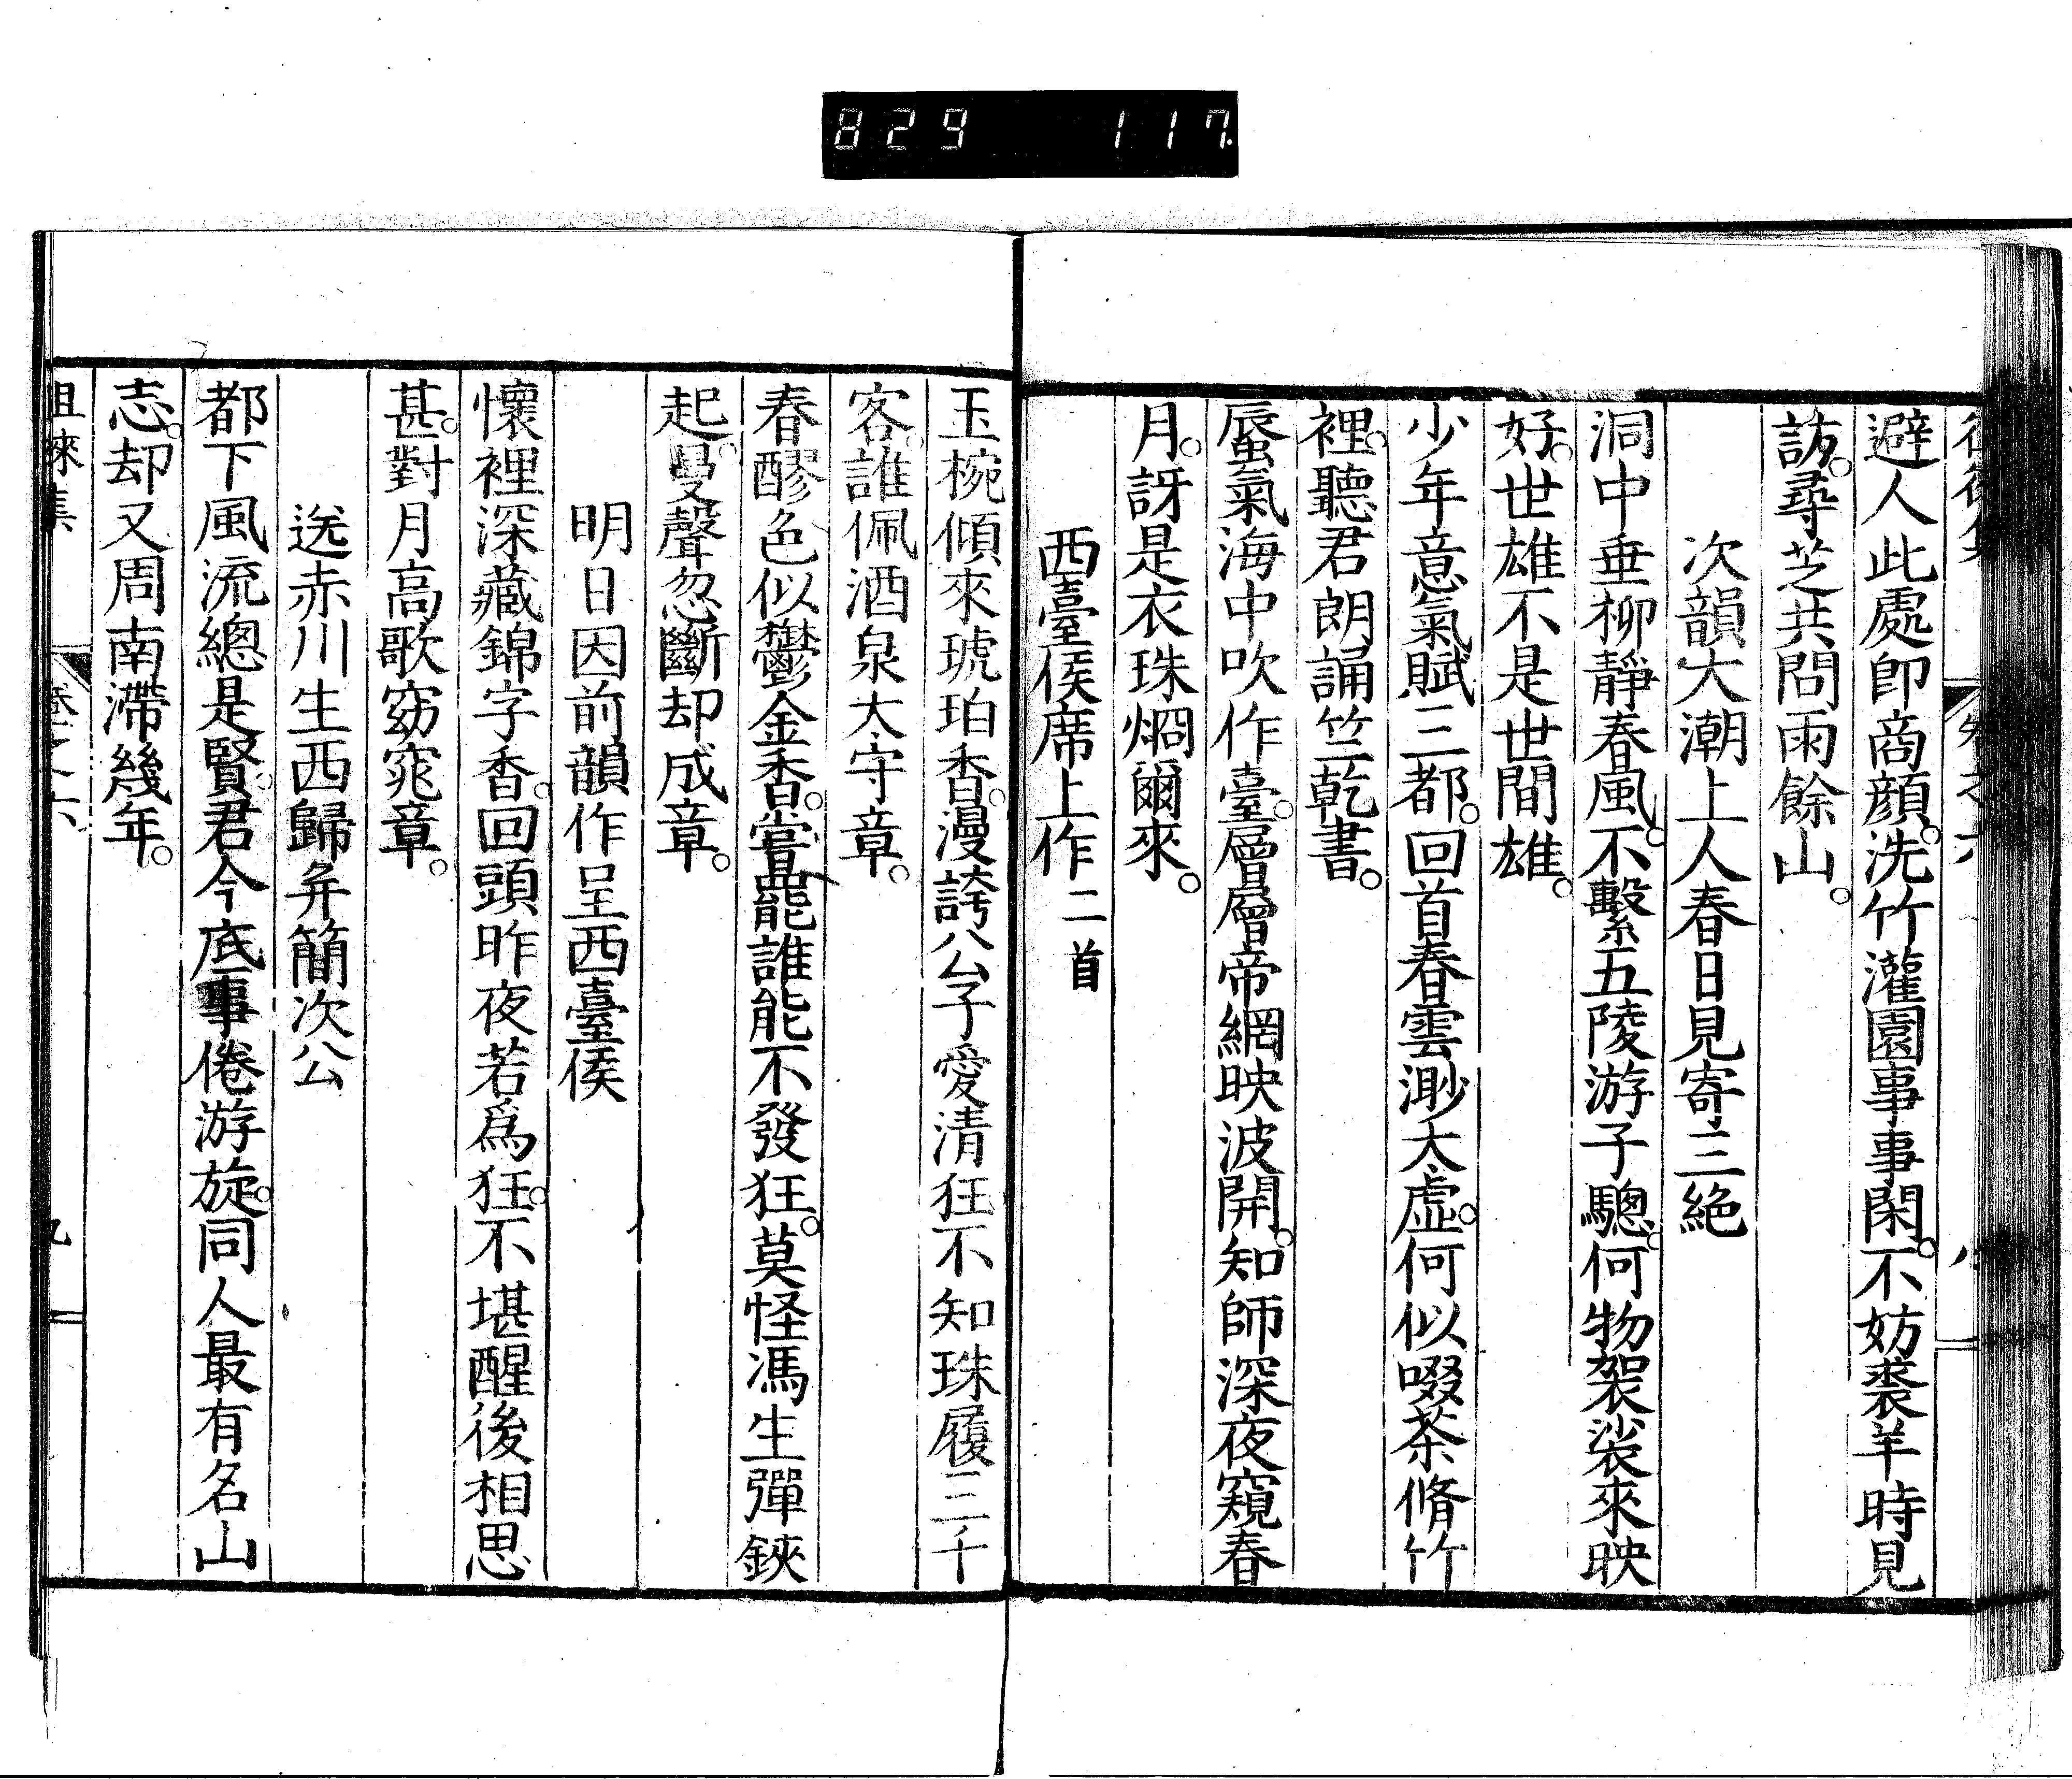 829 117
避人此處卽商顔。洗竹灌園事事閑。不妨裘羊時見
訪。尋芝共問雨餘山。
次韻大潮上人春日見寄三絶
洞中垂柳靜春風。不繫五陵游子驄。何物袈裟來映
好。世雄不是世間雄。
少年意氣賦三都。回首春雲渺大虛。何似啜茶脩竹
裡。聽君朗誦竺乾書。
蜃氣海中吹作臺。層層帝網映波開。知師深夜窺春
月。訝是衣珠烱爾來。
西臺侯席上作二首
玉椀傾來琥珀香。漫誇公子愛清狂。不知珠履三千
客。誰佩酒泉太守章。
春醪色似鬱金香。嘗罷誰能不發狂。莫怪馮生彈鋏
起。曼聲忽斷却成章。
明日因前韻作呈西臺侯
懷裡深藏錦字香。回頭昨夜若爲狂。不堪醒後相思
甚。對月高歌窈窕章。
送赤川生西歸弁簡次公
都下風流總是賢。君今底事倦游旋。同人最有名山
志。却又周南滯幾年。
徂徠集 卷之六 九